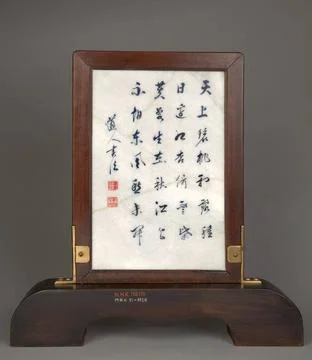 天上碧桃和露種
日邊紅杏倚雲栽
芙蓉生在秋江上
不向東風怨未開
人書